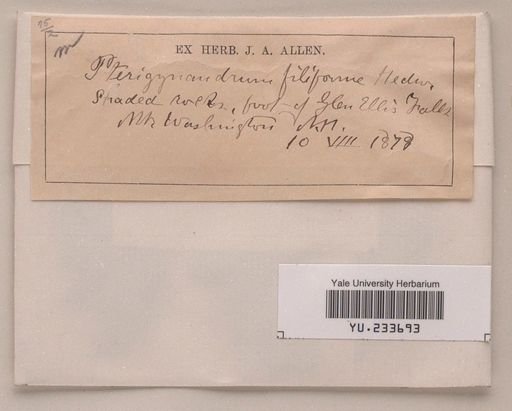 75/2 m
EX HERB. J. A. ALLEN.
Pterigynandrum filiforme Hedw.
Shaded rocks, foot of Glen Ellis Falls
Mt Washington N.H.
10 VIII 1878
Yale University Herbarium
YU.233693